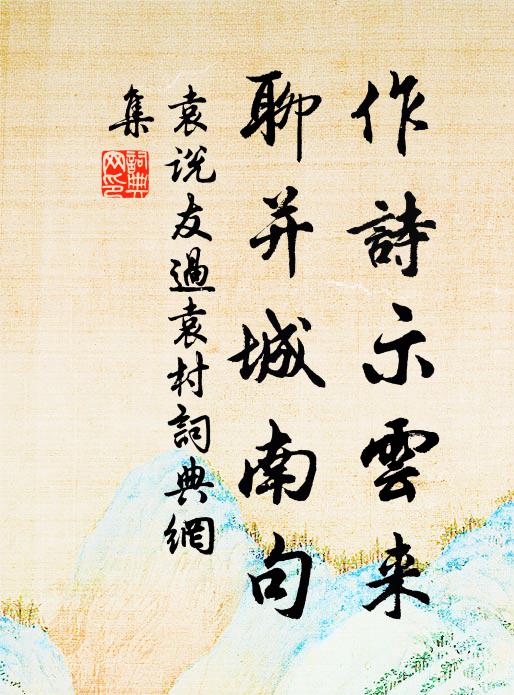 作詩示雲来
聊并城南句
袁説友過袁村詞典網
集
詞典
网印